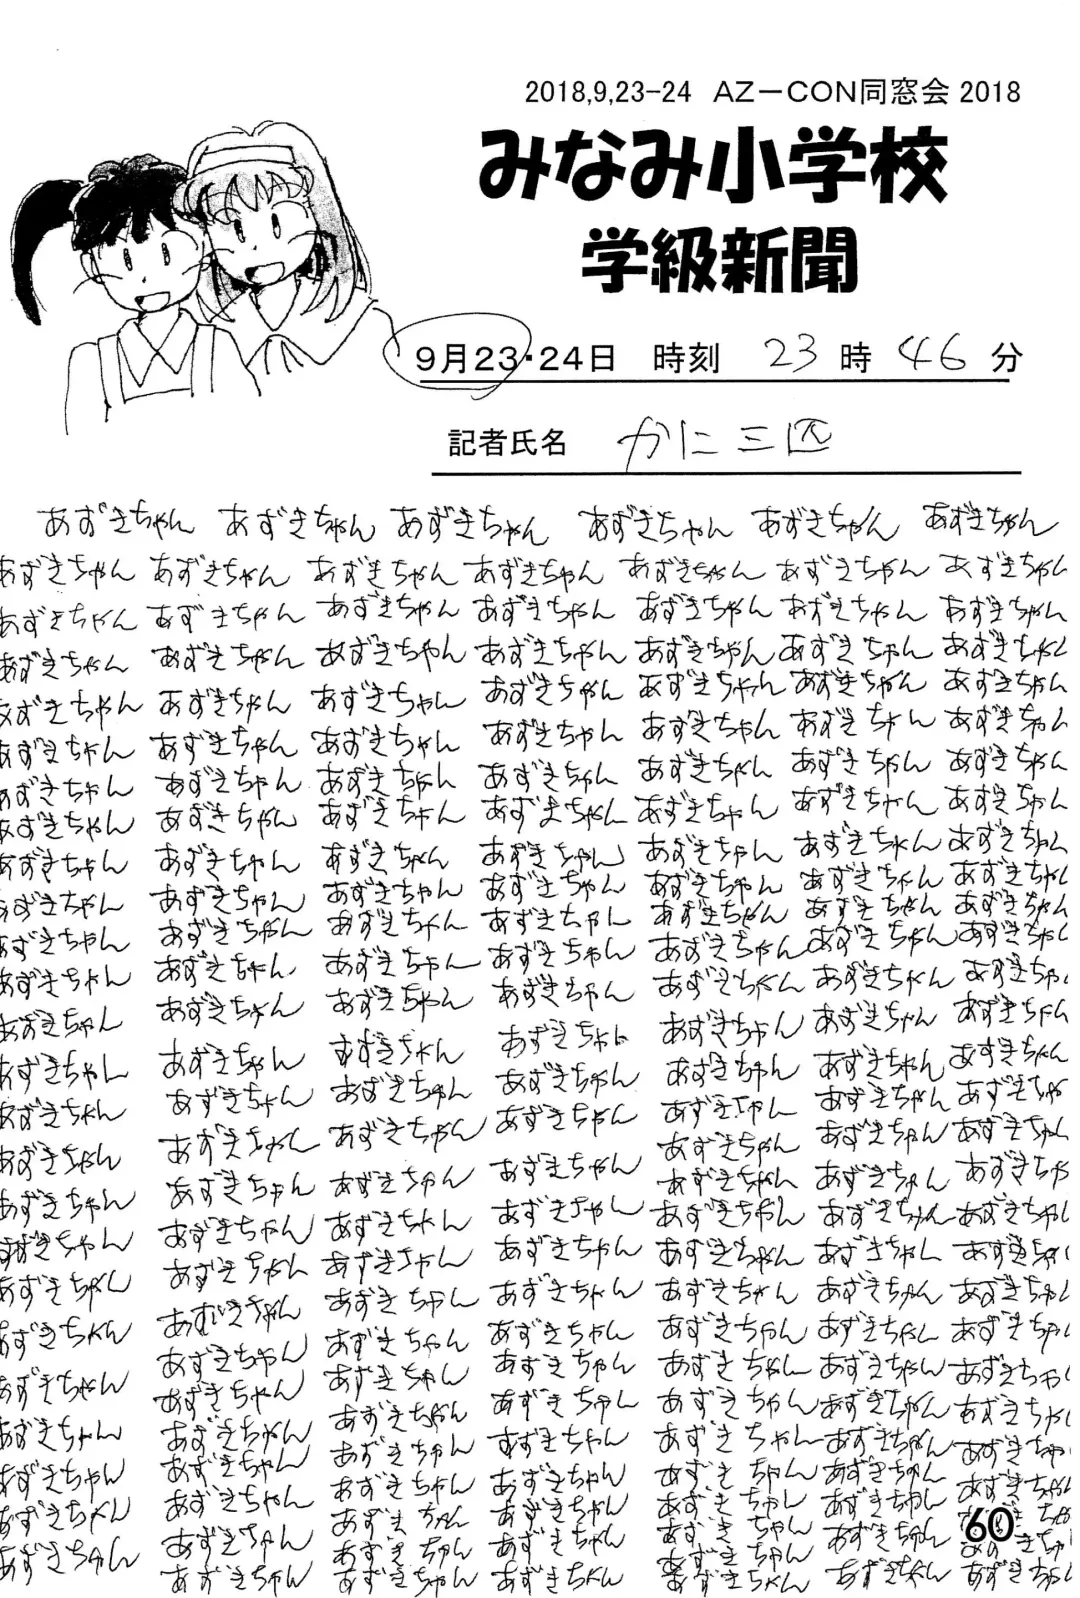 2018,9,23-24 AZーCON同窓会 2018
みなみ小学校
学級新聞
9月23・24日 時刻 23 時 46 分
記者氏名 かに三匹
あずきちゃん あずきちゃん あずきちゃん あずきちゃん あずきちゃん あずきちゃん
あずきちゃん あずきちゃん あずきちゃん あずきちゃん あずきちゃん あずきちゃん あずきちゃん
あずきちゃん あずきちゃん あずきちゃん あずきちゃん あずきちゃん あずきちゃん あずきちゃん
あずきちゃん あずきちゃん あずきちゃん あずきちゃん あずきちゃん あずきちゃん あずきちゃん
あずきちゃん あずきちゃん あずきちゃん あずきちゃん あずきちゃん あずきちゃん あずきちゃん
あずきちゃん あずきちゃん あずきちゃん あずきちゃん あずきちゃん あずきちゃん あずきちゃん
あずきちゃん あずきちゃん あずきちゃん あずきちゃん あずきちゃん あずきちゃん あずきちゃん
あずきちゃん あずきちゃん あずきちゃん あずきちゃん あずきちゃん あずきちゃん あずきちゃん
あずきちゃん あずきちゃん あずきちゃん あずきちゃん あずきちゃん あずきちゃん あずきちゃん
あずきちゃん あずきちゃん あずきちゃん あずきちゃん あずきちゃん あずきちゃん あずきちゃん
あずきちゃん あずきちゃん あずきちゃん あずきちゃん あずきちゃん あずきちゃん あずきちゃん
あずきちゃん あずきちゃん あずきちゃん あずきちゃん あずきちゃん あずきちゃん あずきちゃん
あずきちゃん あずきちゃん あずきちゃん あずきちゃん あずきちゃん あずきちゃん あずきちゃん
あずきちゃん あずきちゃん あずきちゃん あずきちゃん あずきちゃん あずきちゃん あずきちゃん
あずきちゃん あずきちゃん あずきちゃん あずきちゃん あずきちゃん あずきちゃん あずきちゃん
あずきちゃん あずきちゃん あずきちゃん あずきちゃん あずきちゃん あずきちゃん あずきちゃん
あずきちゃん あずきちゃん あずきちゃん あずきちゃん あずきちゃん あずきちゃん あずきちゃん
あずきちゃん あずきちゃん あずきちゃん あずきちゃん あずきちゃん あずきちゃん あずきちゃん
あずきちゃん あずきちゃん あずきちゃん あずきちゃん あずきちゃん あずきちゃん あずきちゃん
あずきちゃん あずきちゃん あずきちゃん あずきちゃん あずきちゃん あずきちゃん あずきちゃん
あずきちゃん あずきちゃん あずきちゃん あずきちゃん あずきちゃん あずきちゃん あずきちゃん
あずきちゃん あずきちゃん あずきちゃん あずきちゃん あずきちゃん あずきちゃん あずきちゃん
あずきちゃん あずきちゃん あずきちゃん あずきちゃん あずきちゃん あずきちゃん あずきちゃん
あずきちゃん あずきちゃん あずきちゃん あずきちゃん あずきちゃん あずきちゃん あずきちゃん
あずきちゃん あずきちゃん あずきちゃん あずきちゃん あずきちゃん あずきちゃん あずきちゃん
あずきちゃん あずきちゃん あずきちゃん あずきちゃん あずきちゃん あずきちゃん あずきちゃん
あずきちゃん あずきちゃん あずきちゃん あずきちゃん あずきちゃん あずきちゃん あずきちゃん
60